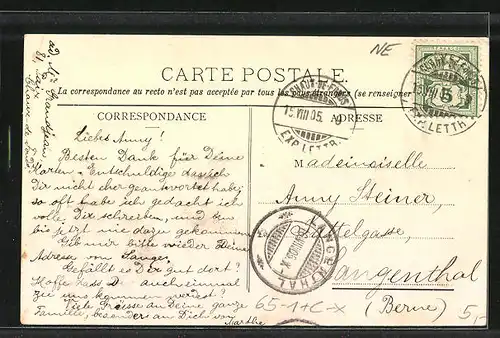 NE
CARTE POSTALE.
La correspondance au recto n'est pas acceptée par tous les pays étrangers (se renseigner
CORRESPONDANCE
ADRESSE
CHAUX-DE-FONDS
15.VIII 05.
EXP. LETTR.
EXP. LETTR.
5
Liebes Anny!
Besten Dank für Deine
Karten. Entschuldige dass ich
Dir nicht eher geantwortet habe;
so oft habe ich gedacht ich
wolle Dir schreiben, und bin
bis jetzt nie dazu gekommen
Gib mir bitte wieder Deine
Adresse von
Gefällt es Dir gut dort?
Hoffe dass Du auch einmal
zu uns kommen werdest?
Viele Grüsse an Deine ganze
Familie, besonders an Dich von
Marthe
Mademoiselle
Anny Steiner,
Langenthal
(Berne)
LANGENTHAL
65-1+C-X
5,-